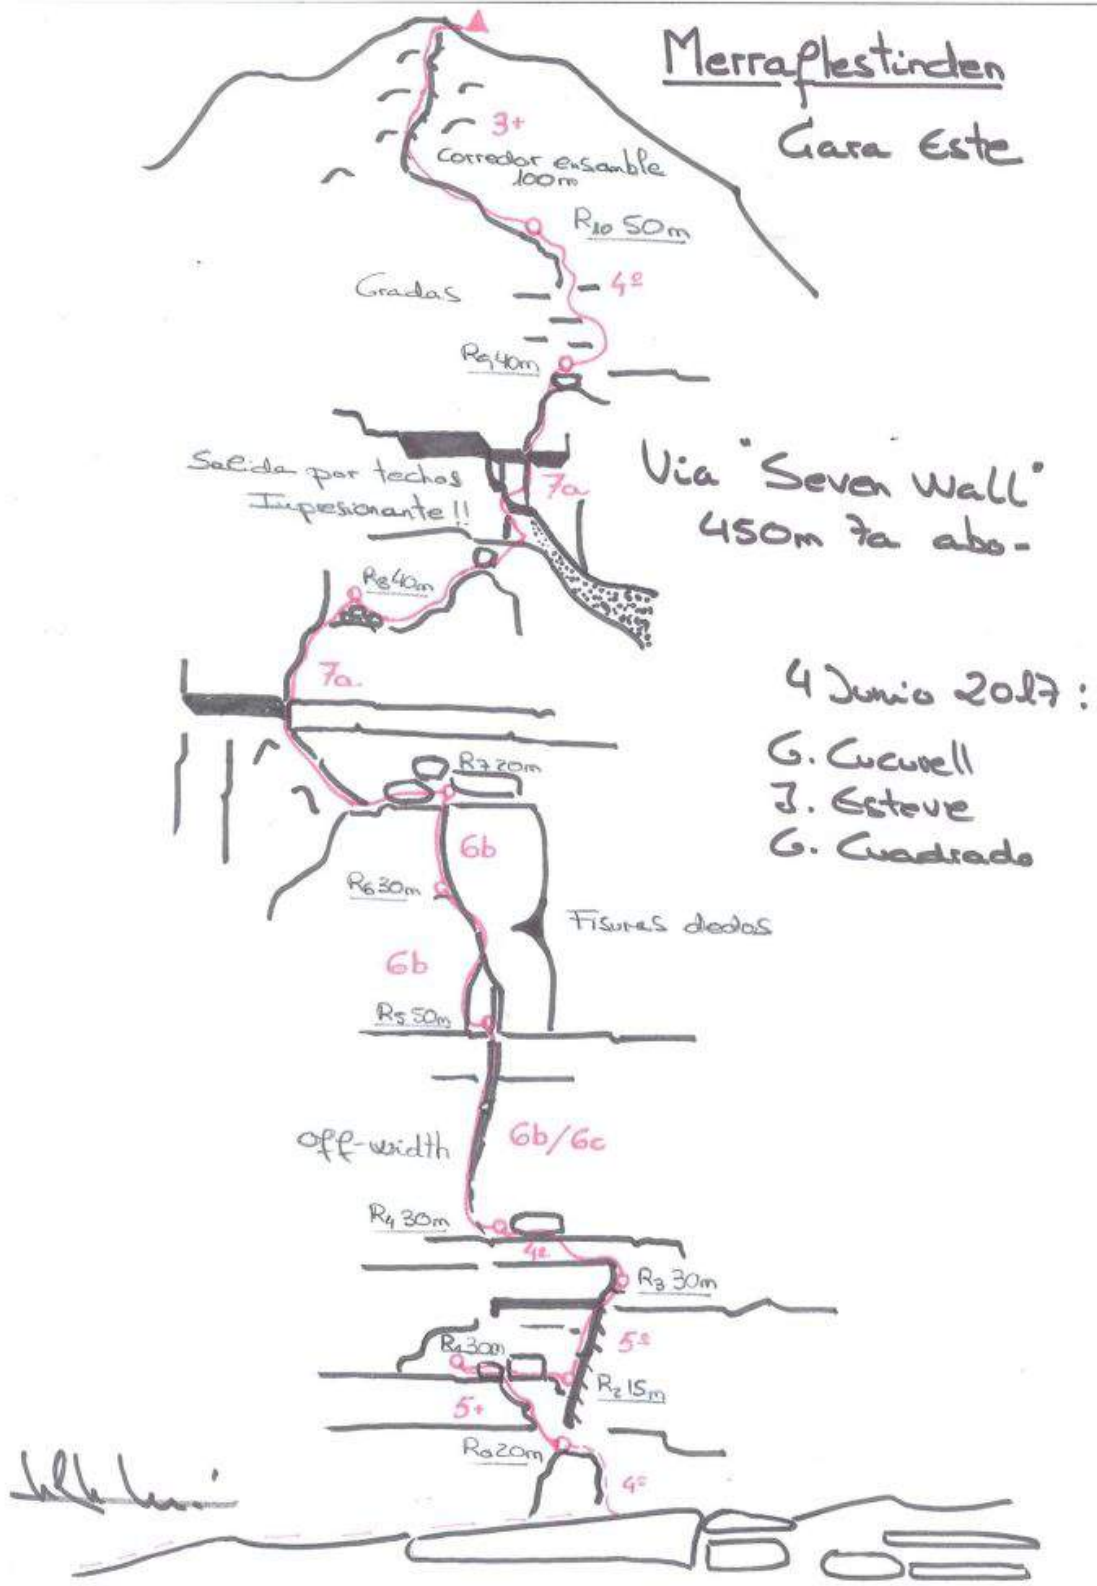 Merraflestinden
Cara Este
3+
Corredor ensamble
100m
R10 50m
4º
Gradas
R9 40m
Salida por techos
Impresionante!!
7a
Via "Seven Wall"
450m 7a abo-
R8 40m
7a
4 Junio 2017:
G. Cucurell
J. Esteve
G. Cuadrado
R7 20m
6b
R6 30m
Fisuras dedos
6b
R5 50m
Off-width
6b/6c
R4 30m
4º
R3 30m
5º
R1 30m
R2 15m
5+
R0 20m
4º